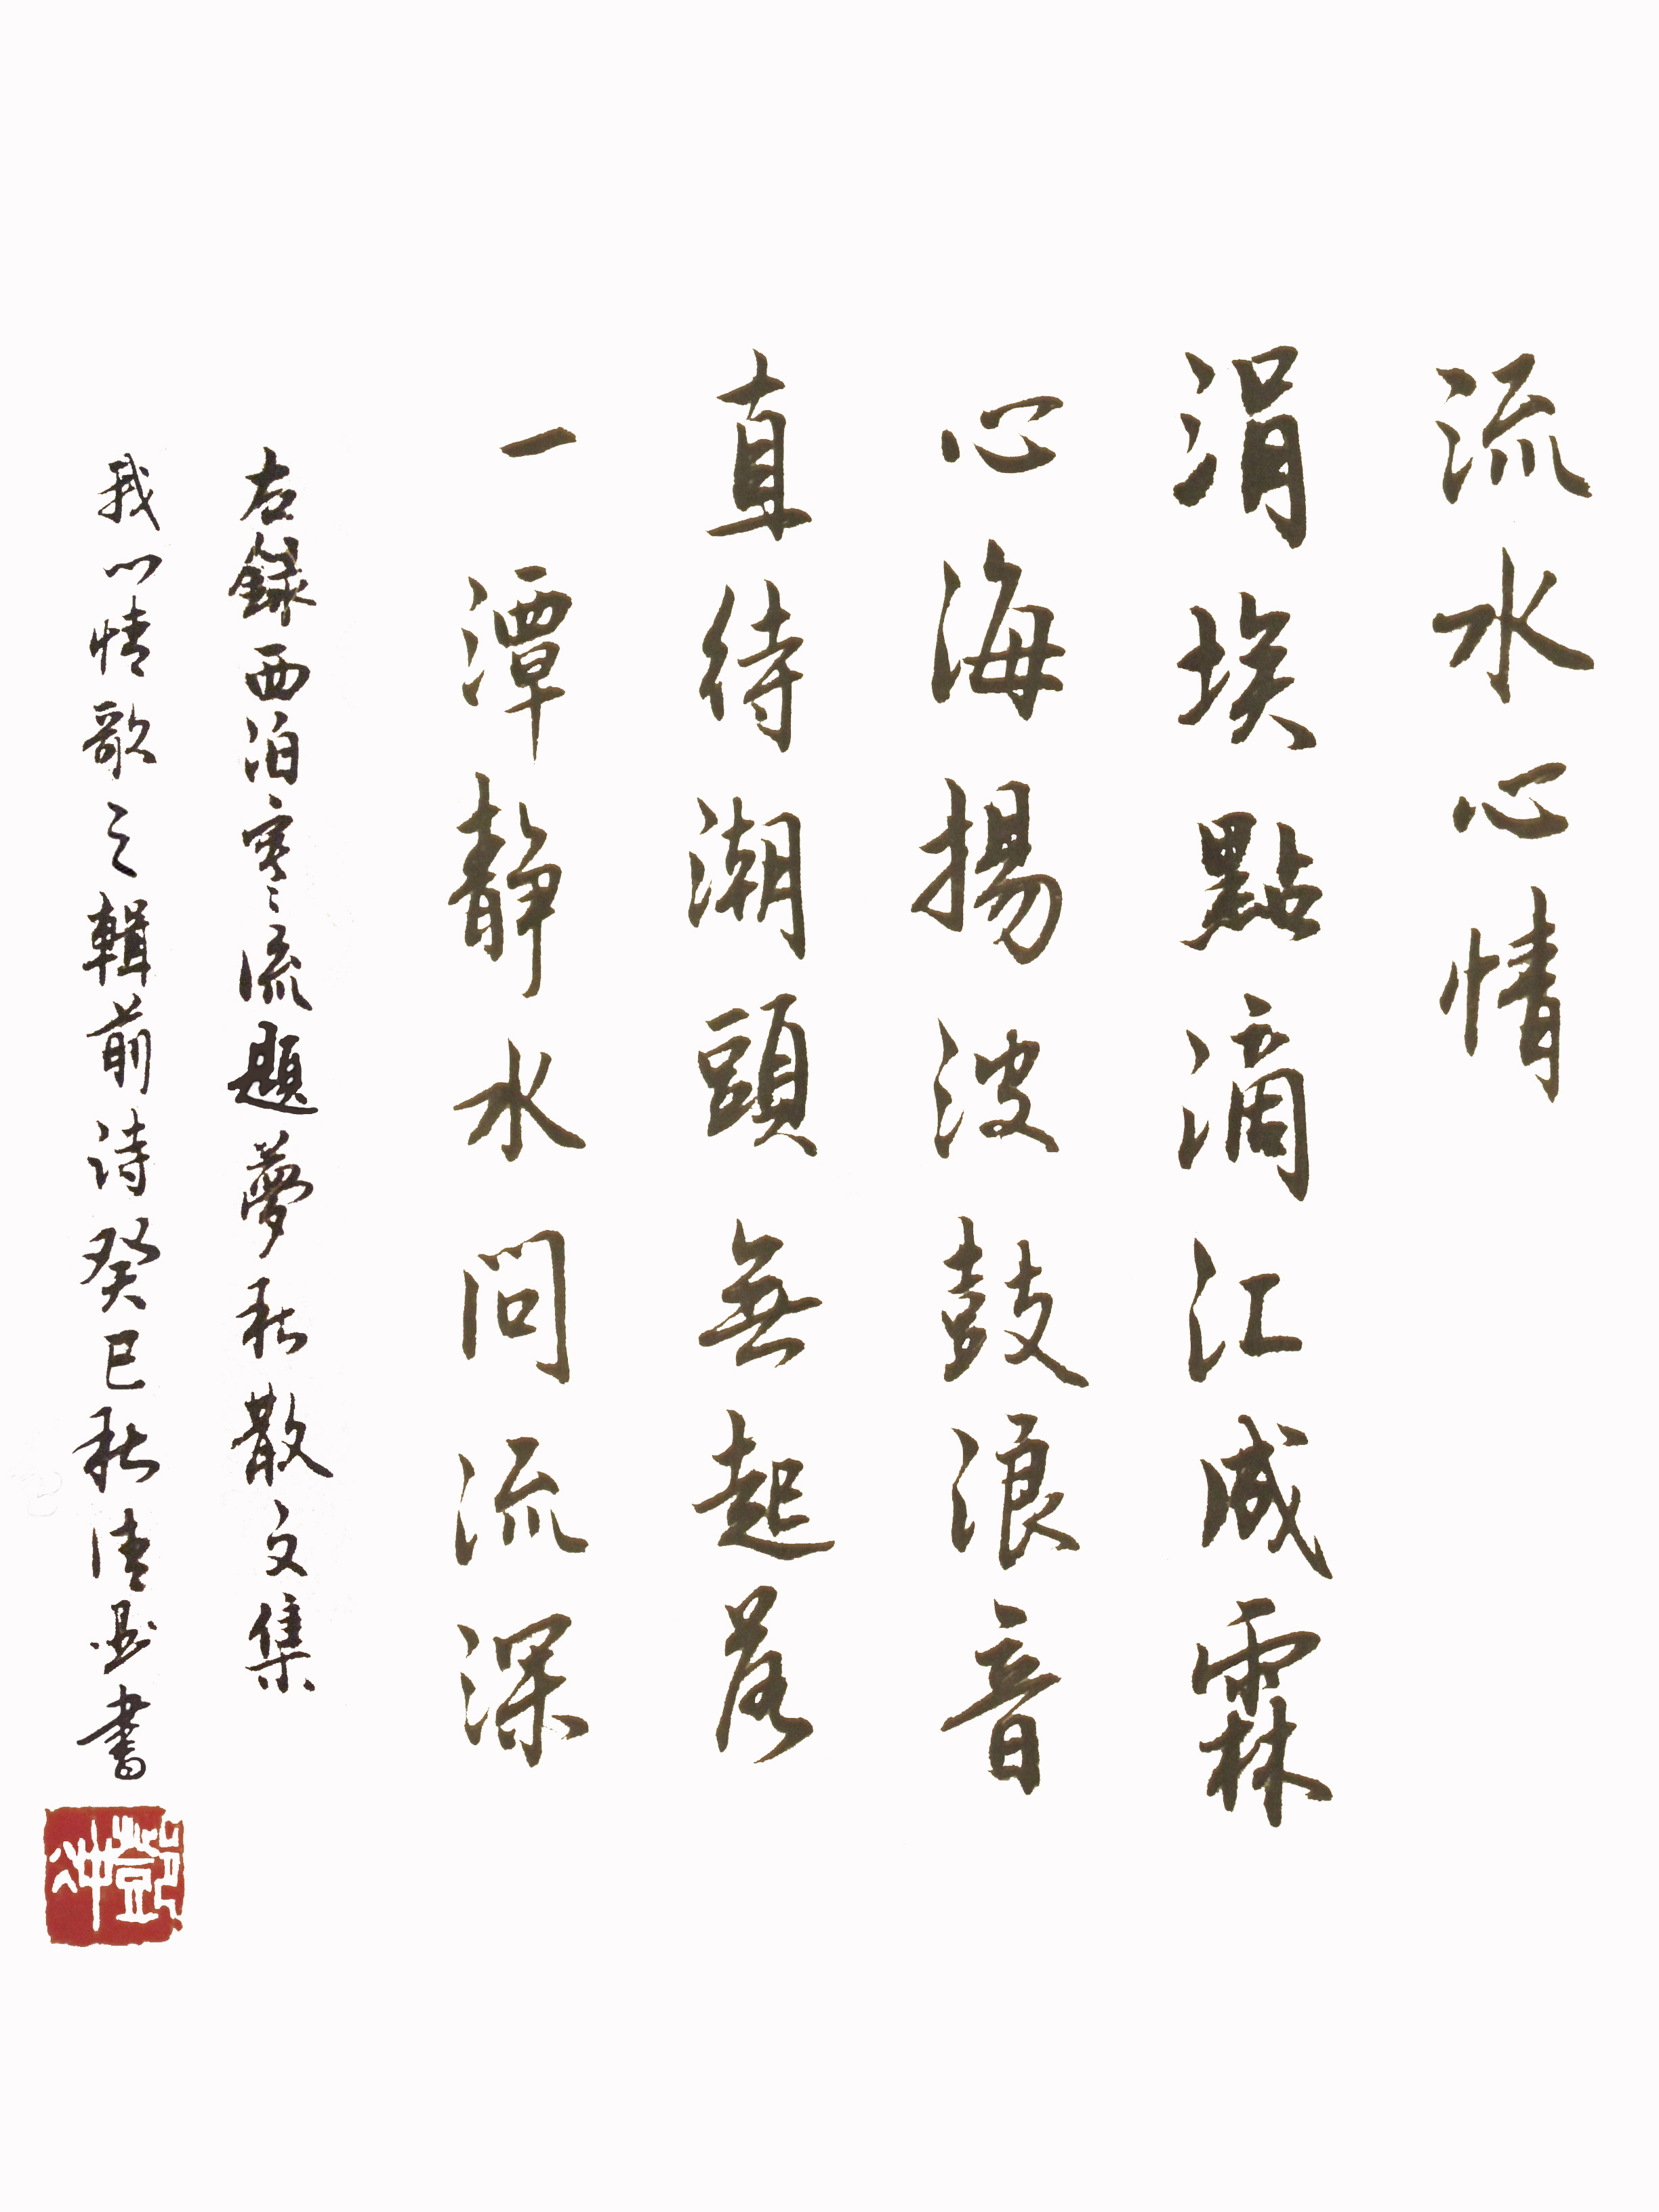 流水心情
涓埃點滴江成霖
心海揚波鼓浪音
直待潮頭無起落
一潭靜水問流深
右録西泊寒流題夢秋散文集
我心情歌之輯前詩癸巳秋書
鄧沖